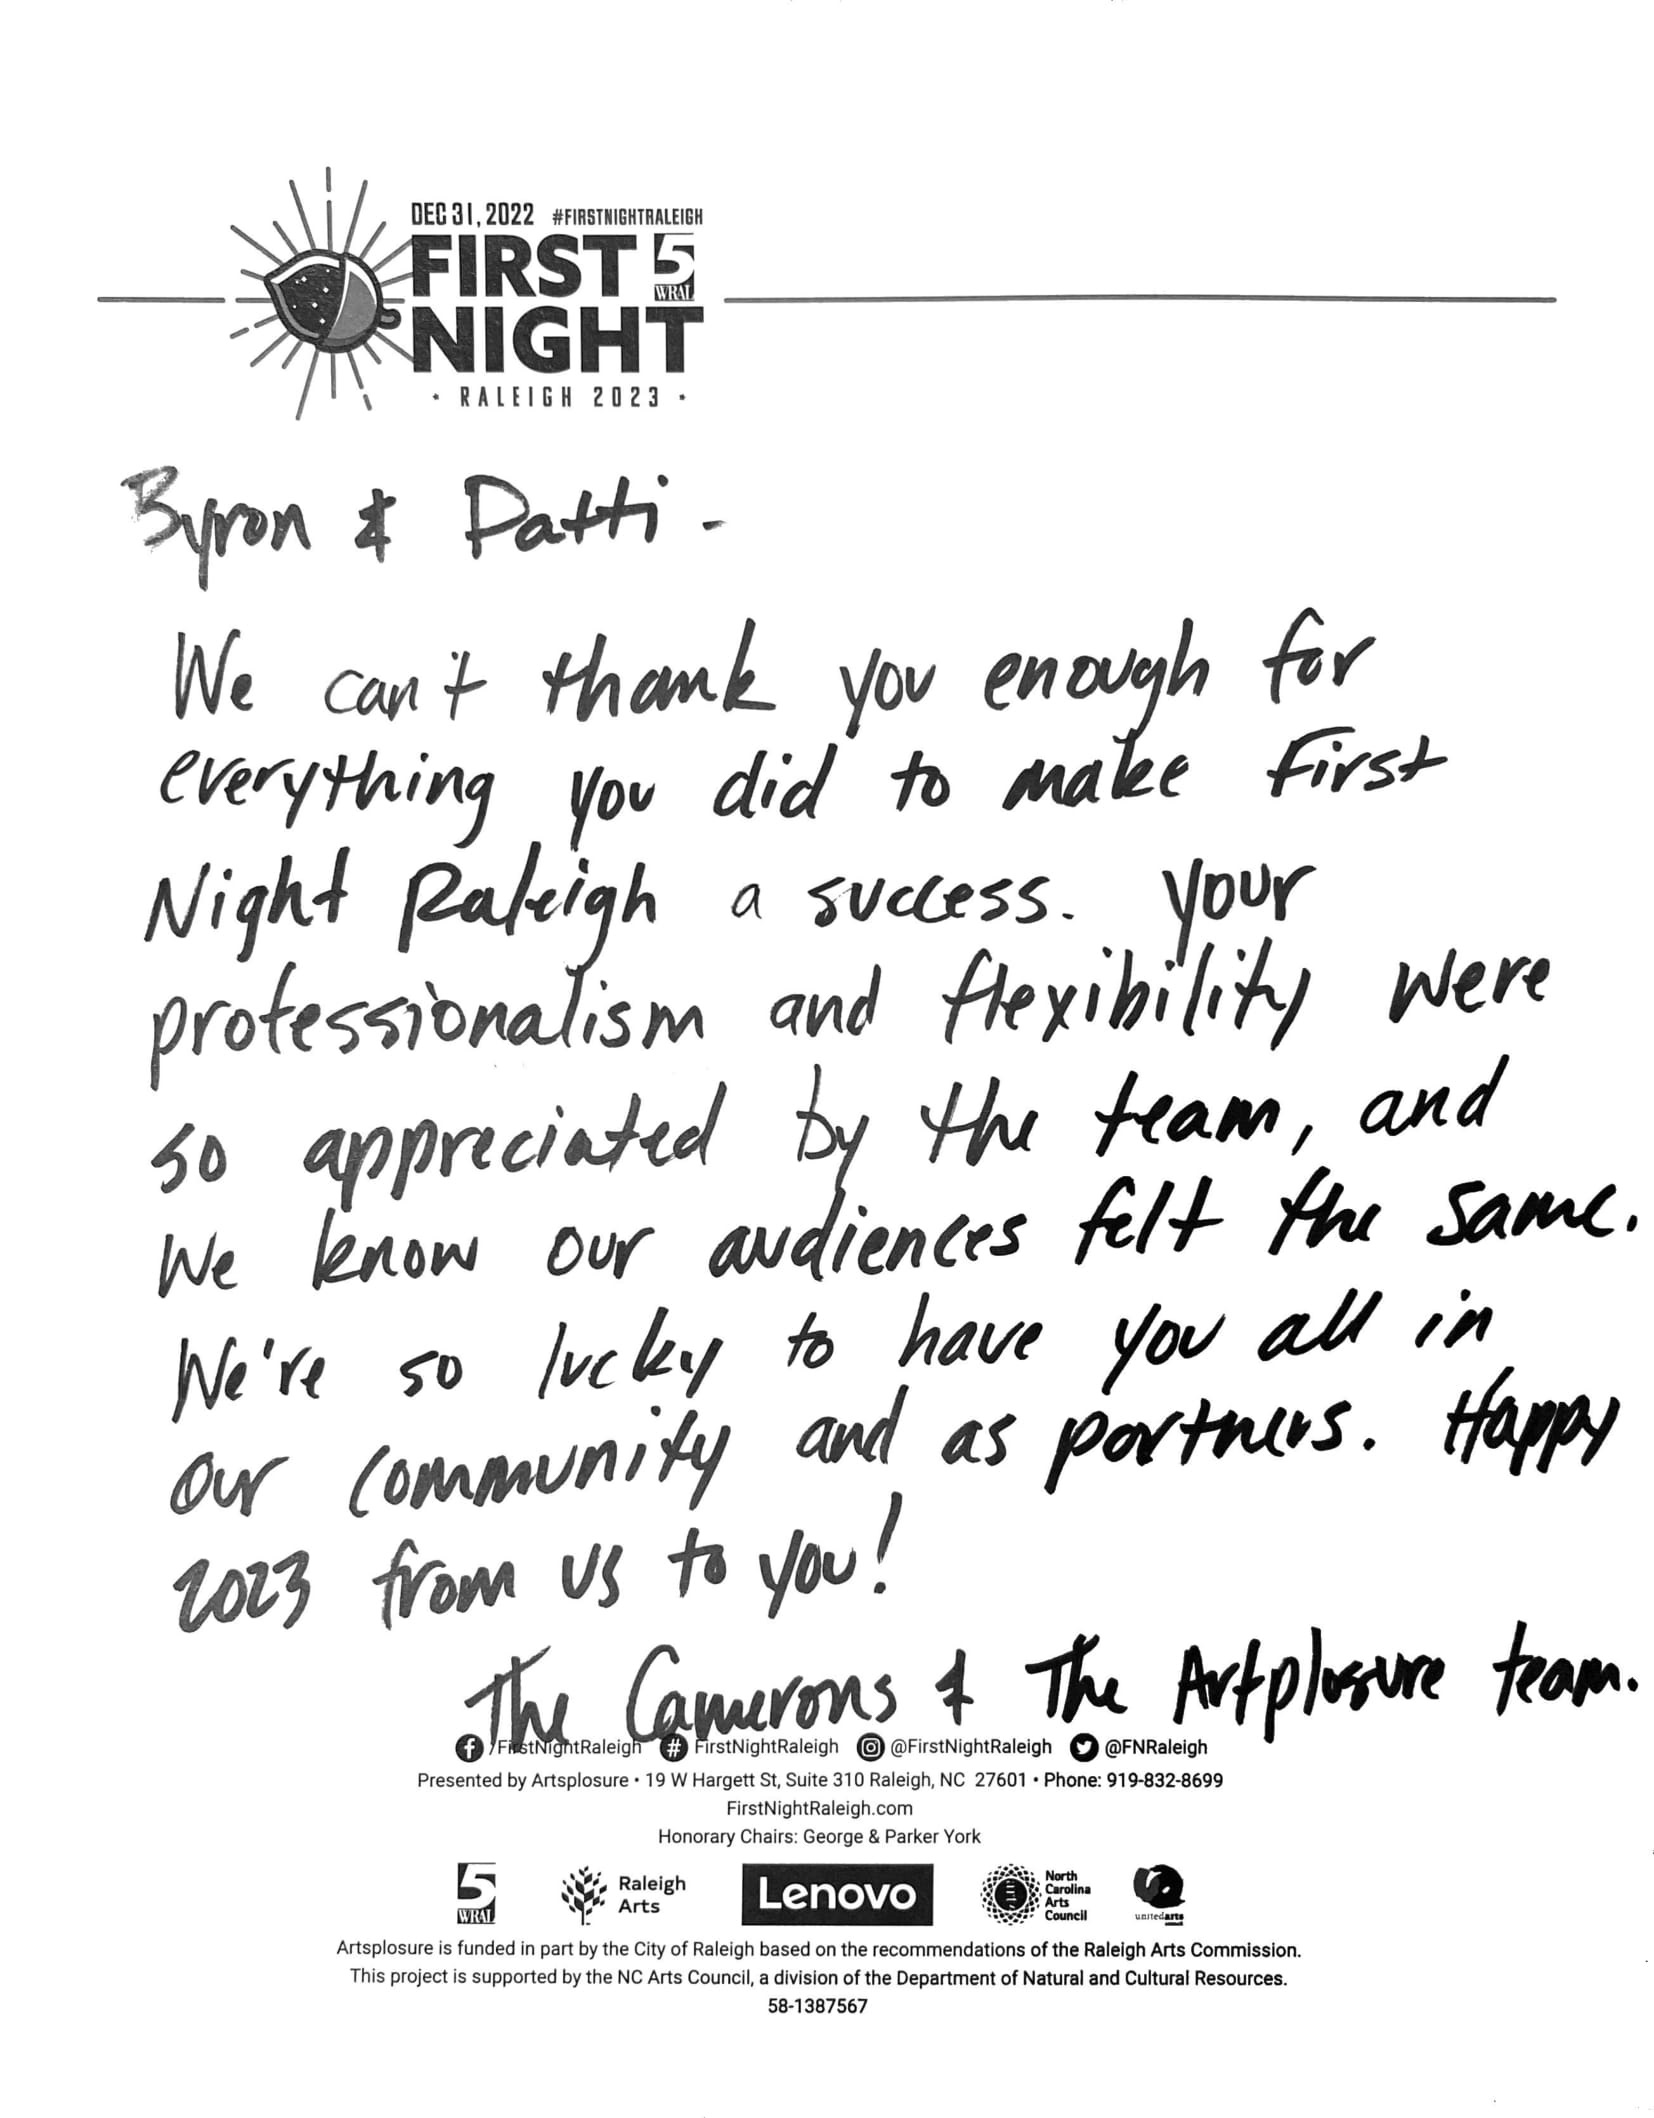 DEC 31, 2022 #FIRSTNIGHTRALEIGH
FIRST 5
WRAL
NIGHT
• RALEIGH 2023 •
Byron & Patti -
We can't thank you enough for
everything you did to make First
Night Raleigh a success. Your
professionalism and flexibility were
so appreciated by the team, and
we know our audiences felt the same.
We're so lucky to have you all in
our community and as partners. Happy
2023 from us to you!
The Camerons & The Artplosure team.
/FirstNightRaleigh # FirstNightRaleigh @FirstNightRaleigh @FNRaleigh
Presented by Artsplosure • 19 W Hargett St, Suite 310 Raleigh, NC 27601 • Phone: 919-832-8699
FirstNightRaleigh.com
Honorary Chairs: George & Parker York
5 WRAL
Raleigh Arts
Lenovo
North Carolina Arts Council
unitedarts
Artsplosure is funded in part by the City of Raleigh based on the recommendations of the Raleigh Arts Commission.
This project is supported by the NC Arts Council, a division of the Department of Natural and Cultural Resources.
58-1387567